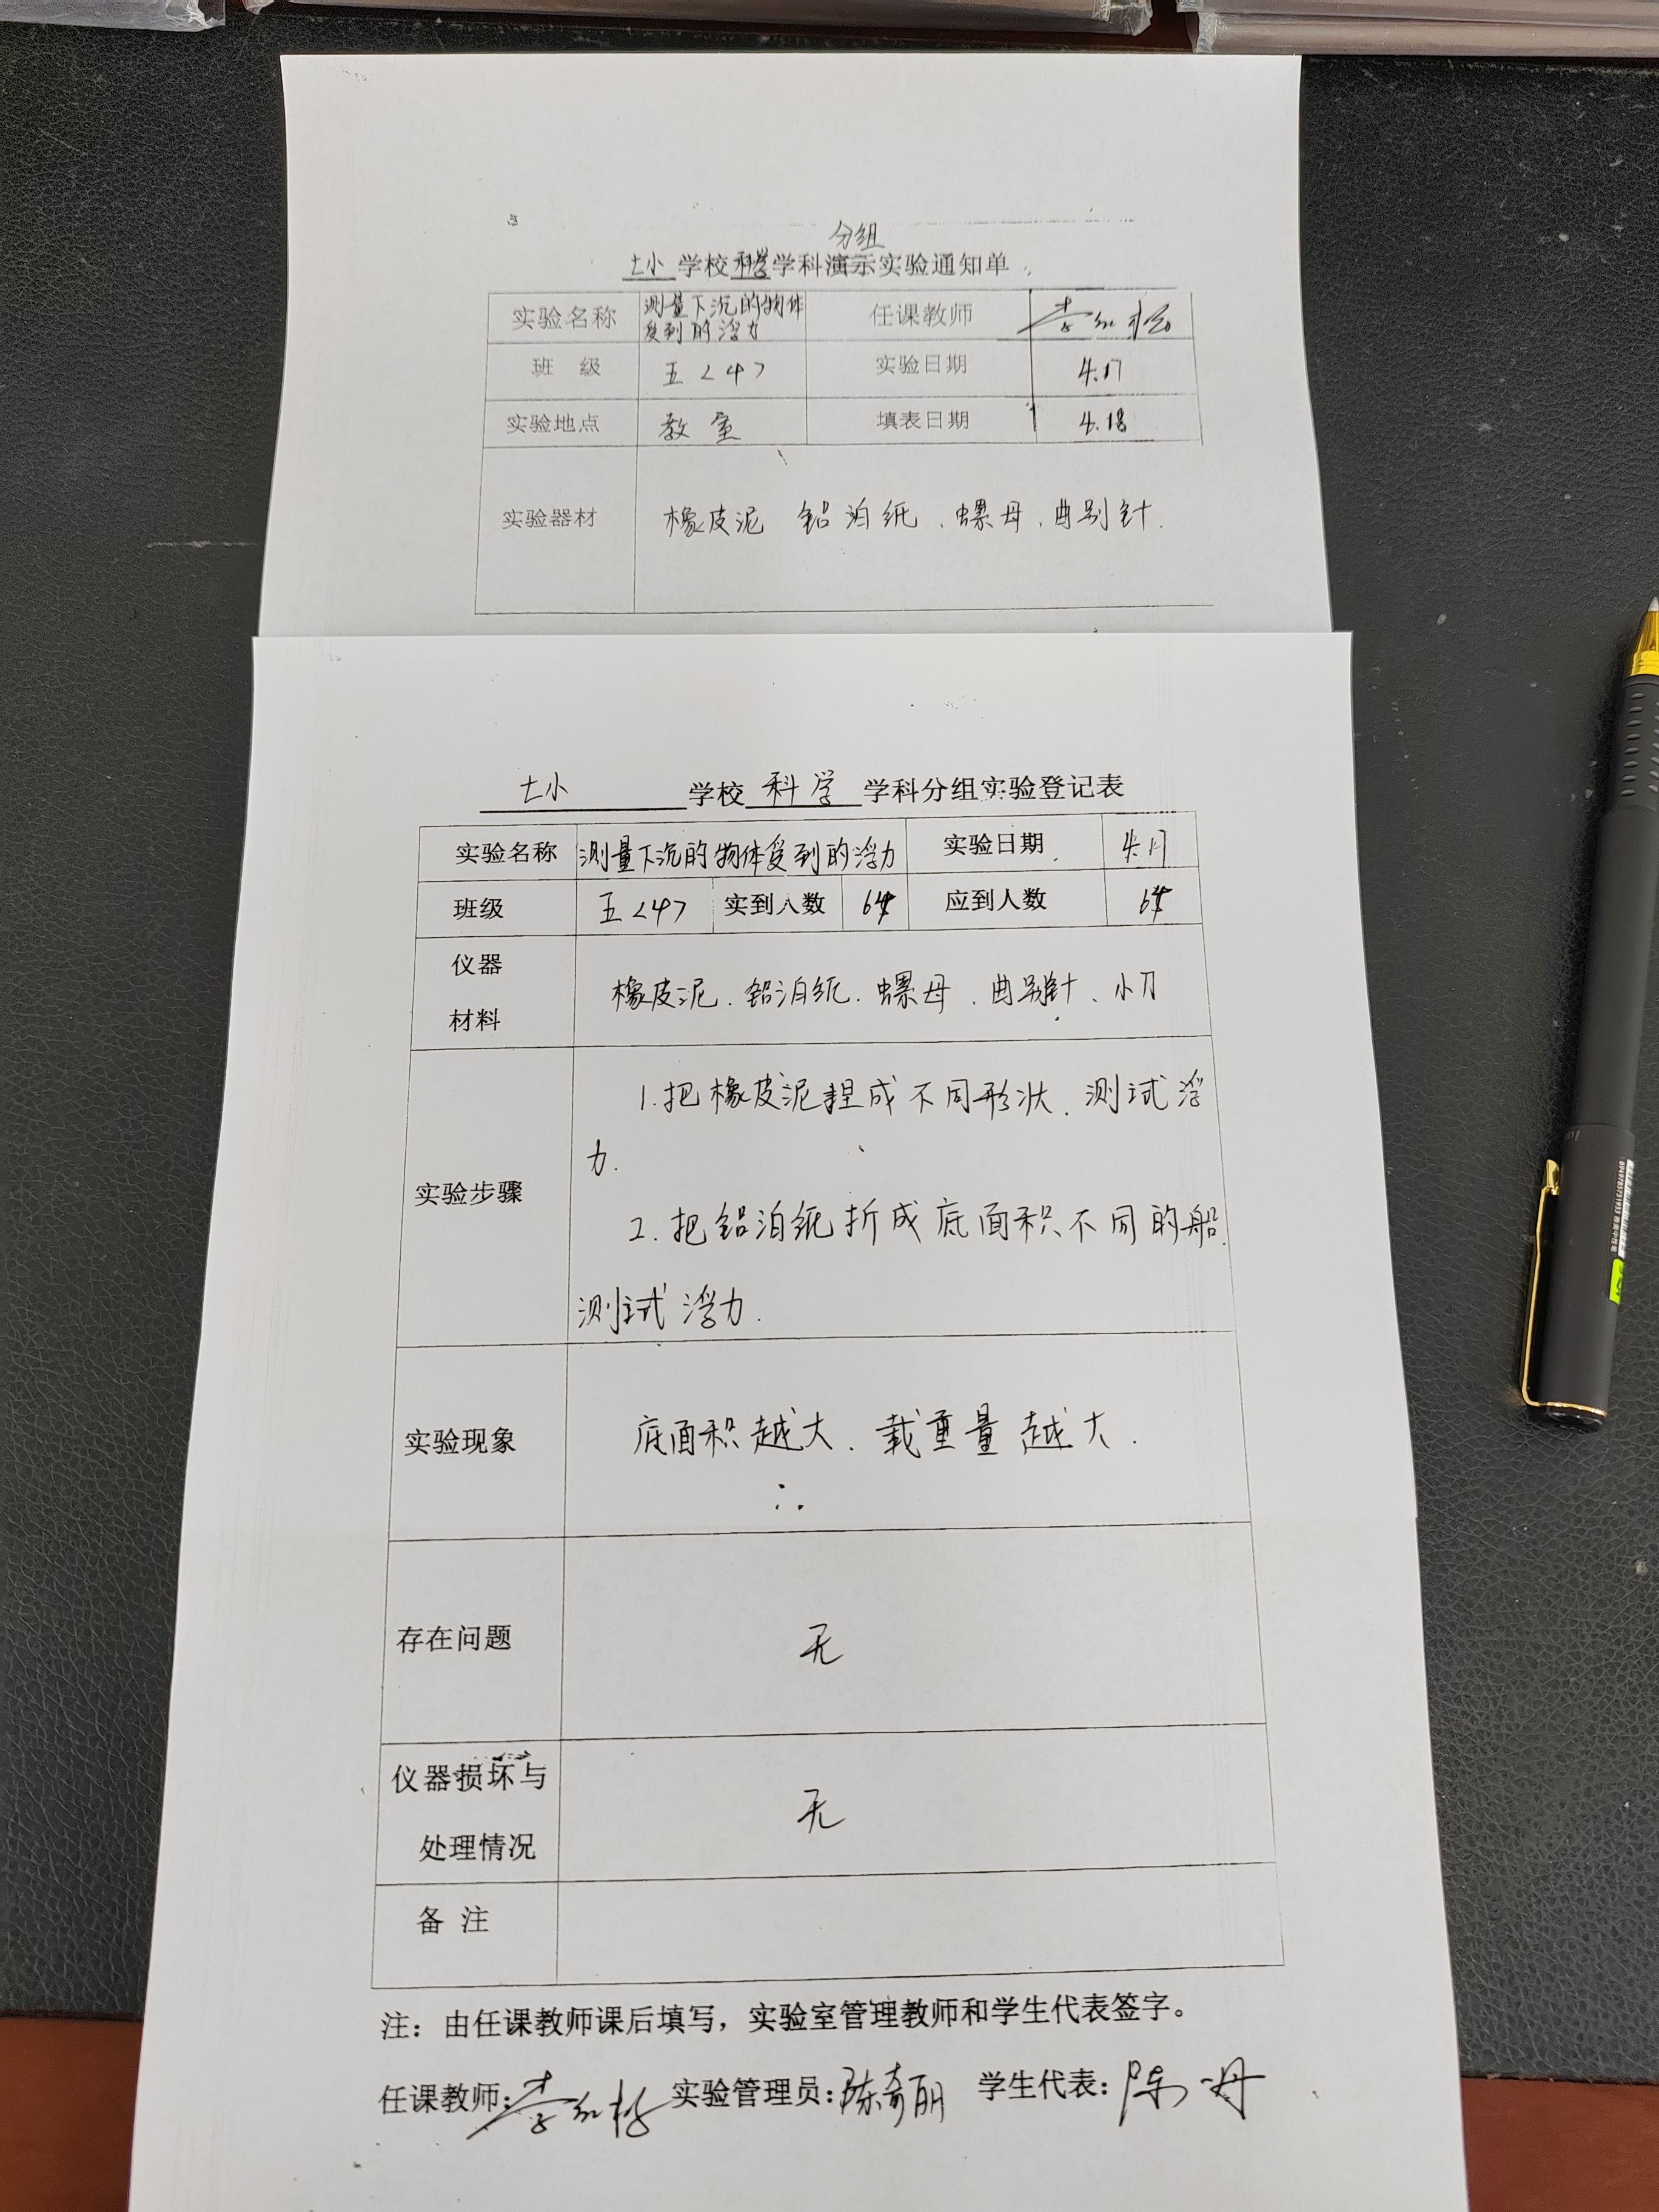 分组
七小 学校 科学 学科演示实验通知单
实验名称 测量下沉的物体受到的浮力 任课教师
班 级 五<4> 实验日期 4.17
实验地点 教室 填表日期 4.18
实验器材 橡皮泥 铝泊纸、螺母、曲别针.
七小 学校 科学 学科分组实验登记表
实验名称 测量下沉的物体受到的浮力 实验日期 4.17
班级 五<4> 实到人数 应到人数
仪器
材料
橡皮泥、铝泊纸、螺母、曲别针、小刀
实验步骤
1.把橡皮泥捏成不同形状、测试浮
力.
2.把铝泊纸折成底面积不同的船.
测试浮力.
实验现象 底面积越大、载重量越大.
存在问题 无
仪器损坏与
处理情况
无
备 注
注：由任课教师课后填写，实验室管理教师和学生代表签字。
任课教师: 实验管理员:陈奇丽 学生代表: